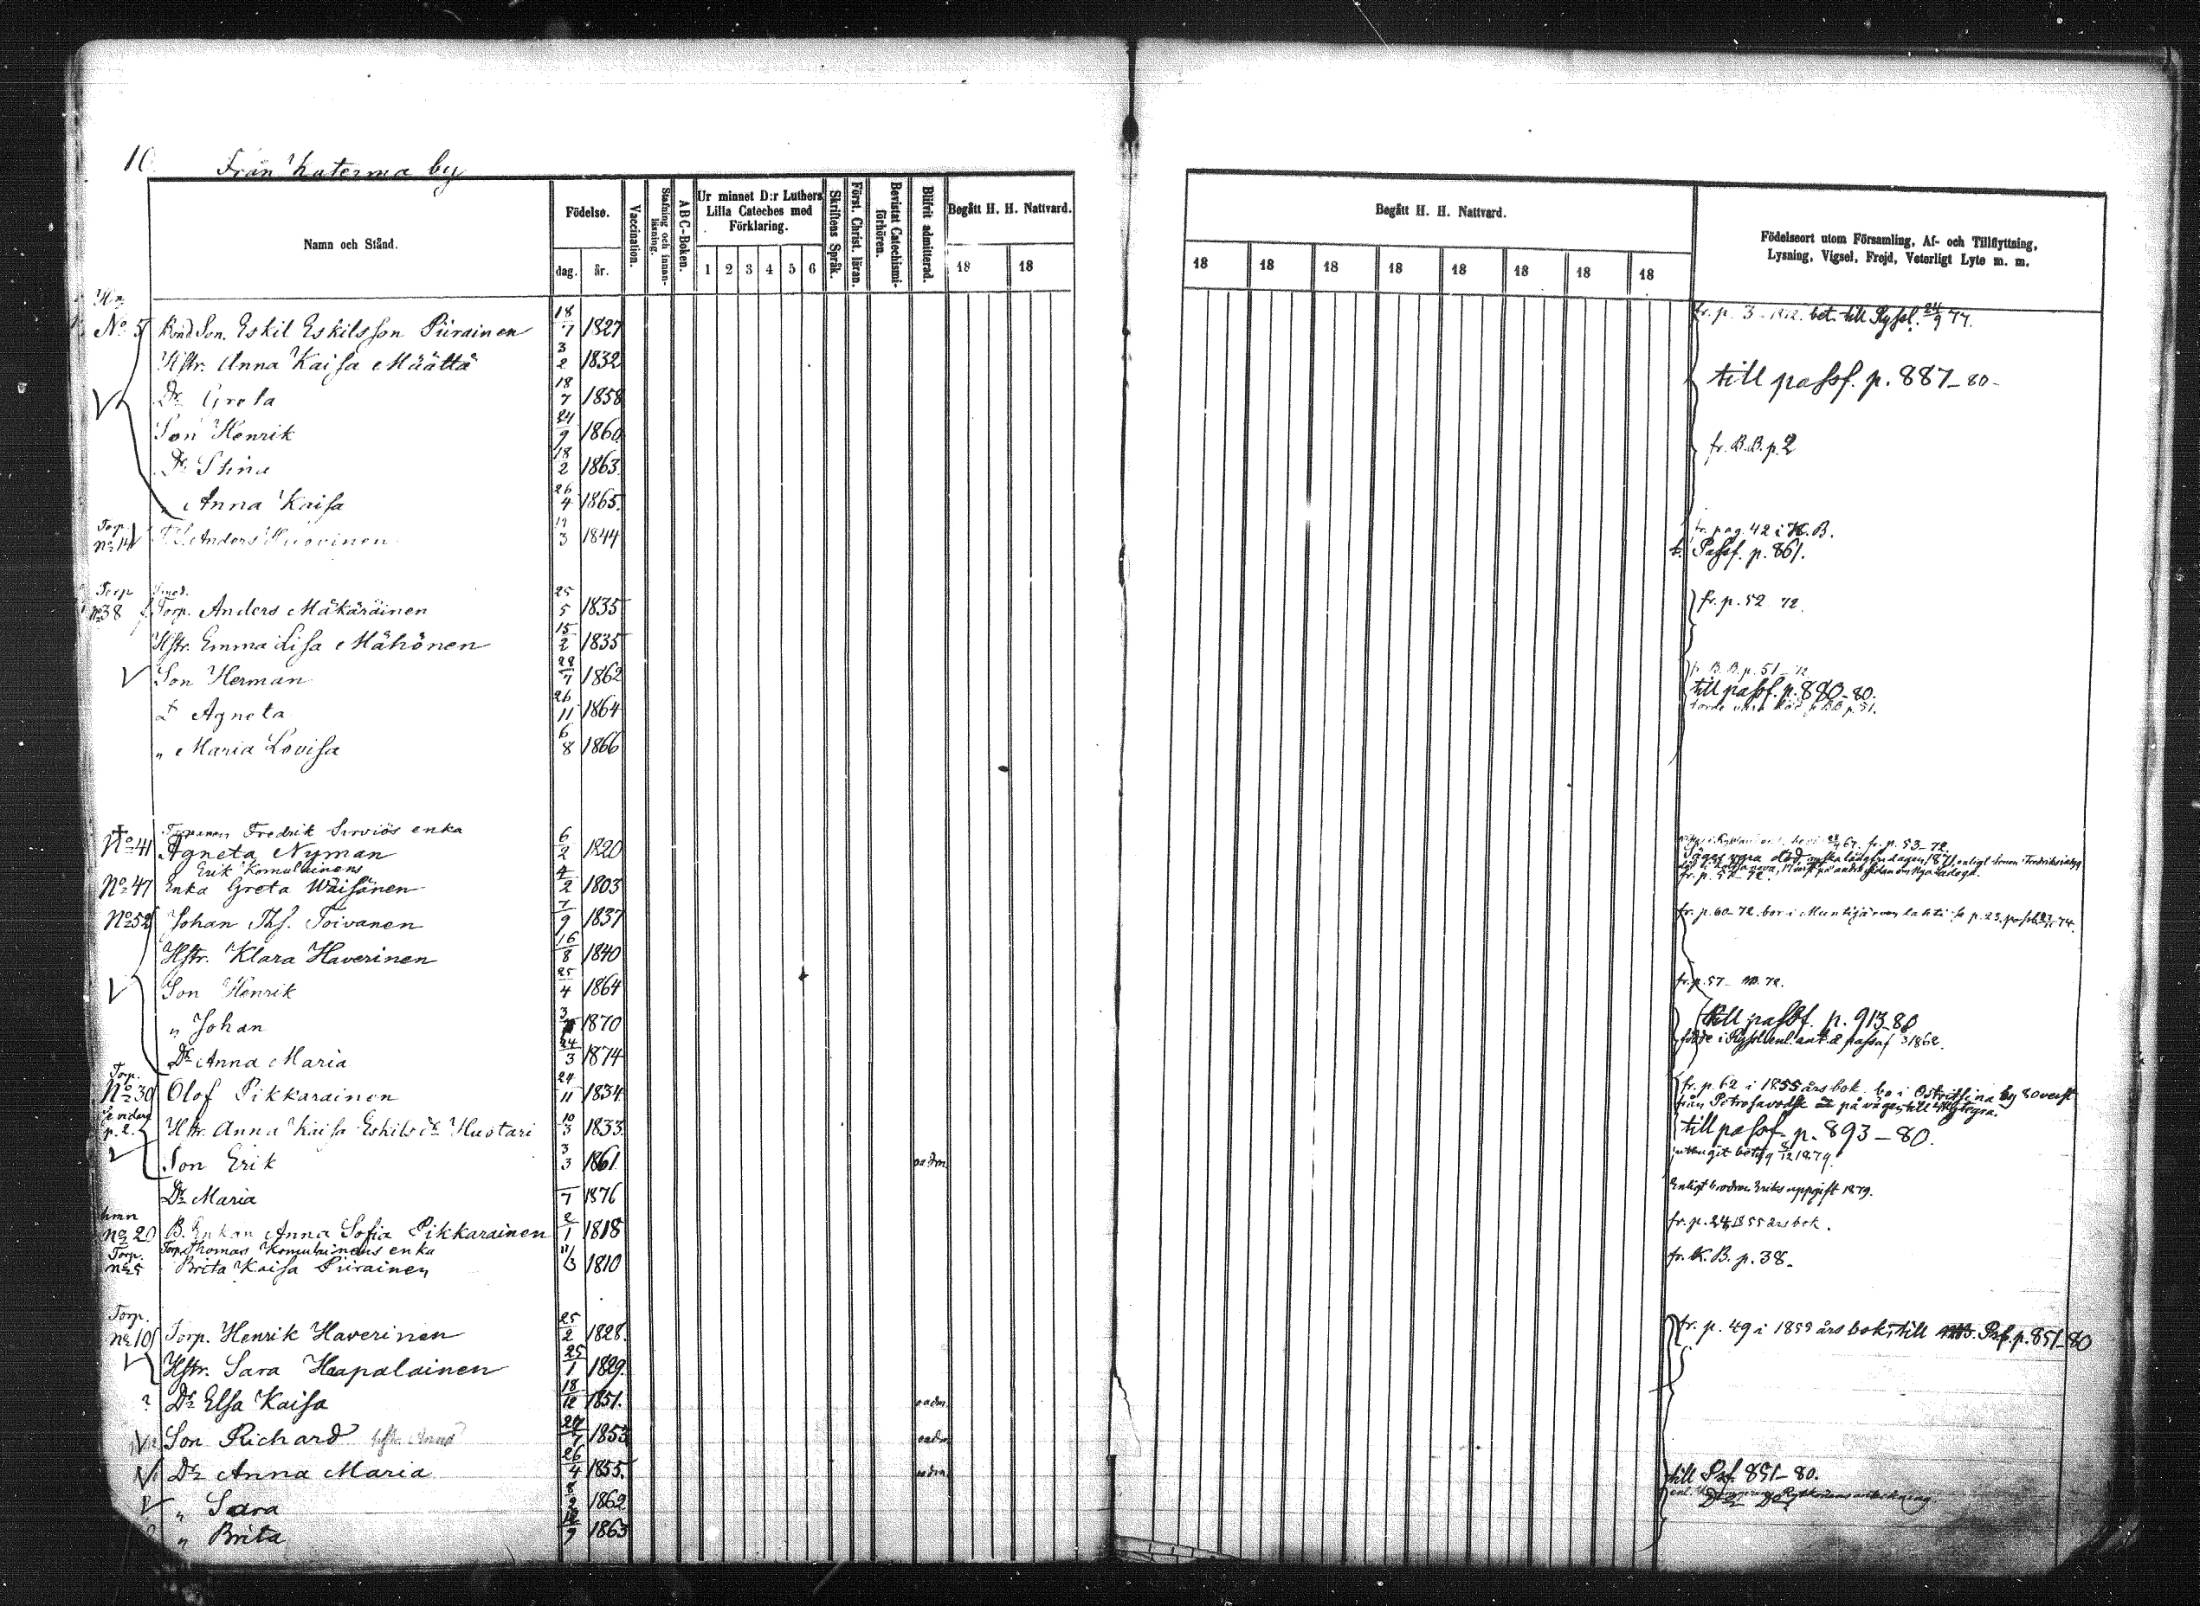 10
Från Katerma by
Namn och Stånd.
Födelse.
dag. år.
Vaccination.
Stafning och innanläsning.
ABC-Boken.
Ur minnet D:r Luthers Lilla Cateches med Förklaring.
1 2 3 4 5 6
Skriftens Språk.
Först. Christ. läran.
Bevistat Catechismiförhören.
Blifvit admitterad.
Begått H. H. Nattvard.
18 18
Begått H. H. Nattvard.
18 18 18 18 18 18 18 18
Födelseort utom Församling, Af- och Tillflyttning,
Lysning, Vigsel, Frejd, Veterligt Lyte m. m.
No 5 Bond Son. Eskil Eskilsson Piirainen 18/7 1827 fr. p. 3 bet. till Ryssl. 24/9 77.
Hstr. Anna Kaisa Määttä 3/2 1832
Dr Greta 18/7 1858 till passf. p. 887-80-
Son Henrik 24/9 1860 fr. B.B. p. 2
Dr Stina 18/2 1863
Anna Kaisa 26/4 1865.
Torp. No 14 Anders Kuovinen 3 1844 fr. pag. 42 i K.B.
t. Passf. p. 861.
Torp No 38 Torp. Anders Mäkäräinen 25/5 1835 fr. p. 52 72.
Hstr. Emma Lisa Mähönen 15/2 1835
Son Herman 28/7 1862 B.B. p. 51
till passf. p. 880-80.
D Agneta 26/11 1864
" Maria Lovisa 6/8 1866
Fredrik Sirviös enka
No 41 Agneta Nyman 6/2 1820 fr. p. 53-72
Erik Komulainens
No 47 Enka Greta Wäisänen 4/2 1803 fr. p. 57-72.
No 52 Johan Ths. Toivanen 7/9 1837 fr. p. 60-72. bor i
Hstr. Klara Haverinen 16/8 1840
Son Henrik 25/4 1864 fr. p. 57 72.
" Johan 3 1870 till passf. p. 913-80
Dr Anna Maria 24/3 1874
Torp. No 30 Olof Pikkarainen 24/11 1834 fr. p. 62 i 1855 års bok. bo i Ostritsina by 80 verst
från Petrosavodsk på vägen till Wytegra.
Se vidare p. 2. Hstr. Anna Kaisa Eskilsdr Huotari 10/3 1833. till passf. p. 893-80.
Son Erik 3/3 1861 oadm.
Dr Maria /7 1876 Enligt brodren Eriks uppgift 1879.
hmn No 20 B. Enkan Anna Sofia Pikkarainen 2/1 1818 fr. p. 24 1855 års bok.
Torp. Thomas Komulainens enka
Torp. No 5 Brita Kaisa Piirainen 11/3 1810 fr. K.B. p. 38.
Torp. No 10 Torp. Henrik Haverinen 25/2 1828. fr. p. 49 i 1855 års bok; till Psf. p. 851-80
Hstr. Sara Haapalainen 25/1 1829.
? Dr Elsa Kaisa 18/12 1851. oadm.
Son Richard 1853 oadm.
Dr Anna Maria 26/4 1855. oadm. till Psf. 851-80.
" Sara 1862
" Brita 12/9 1863